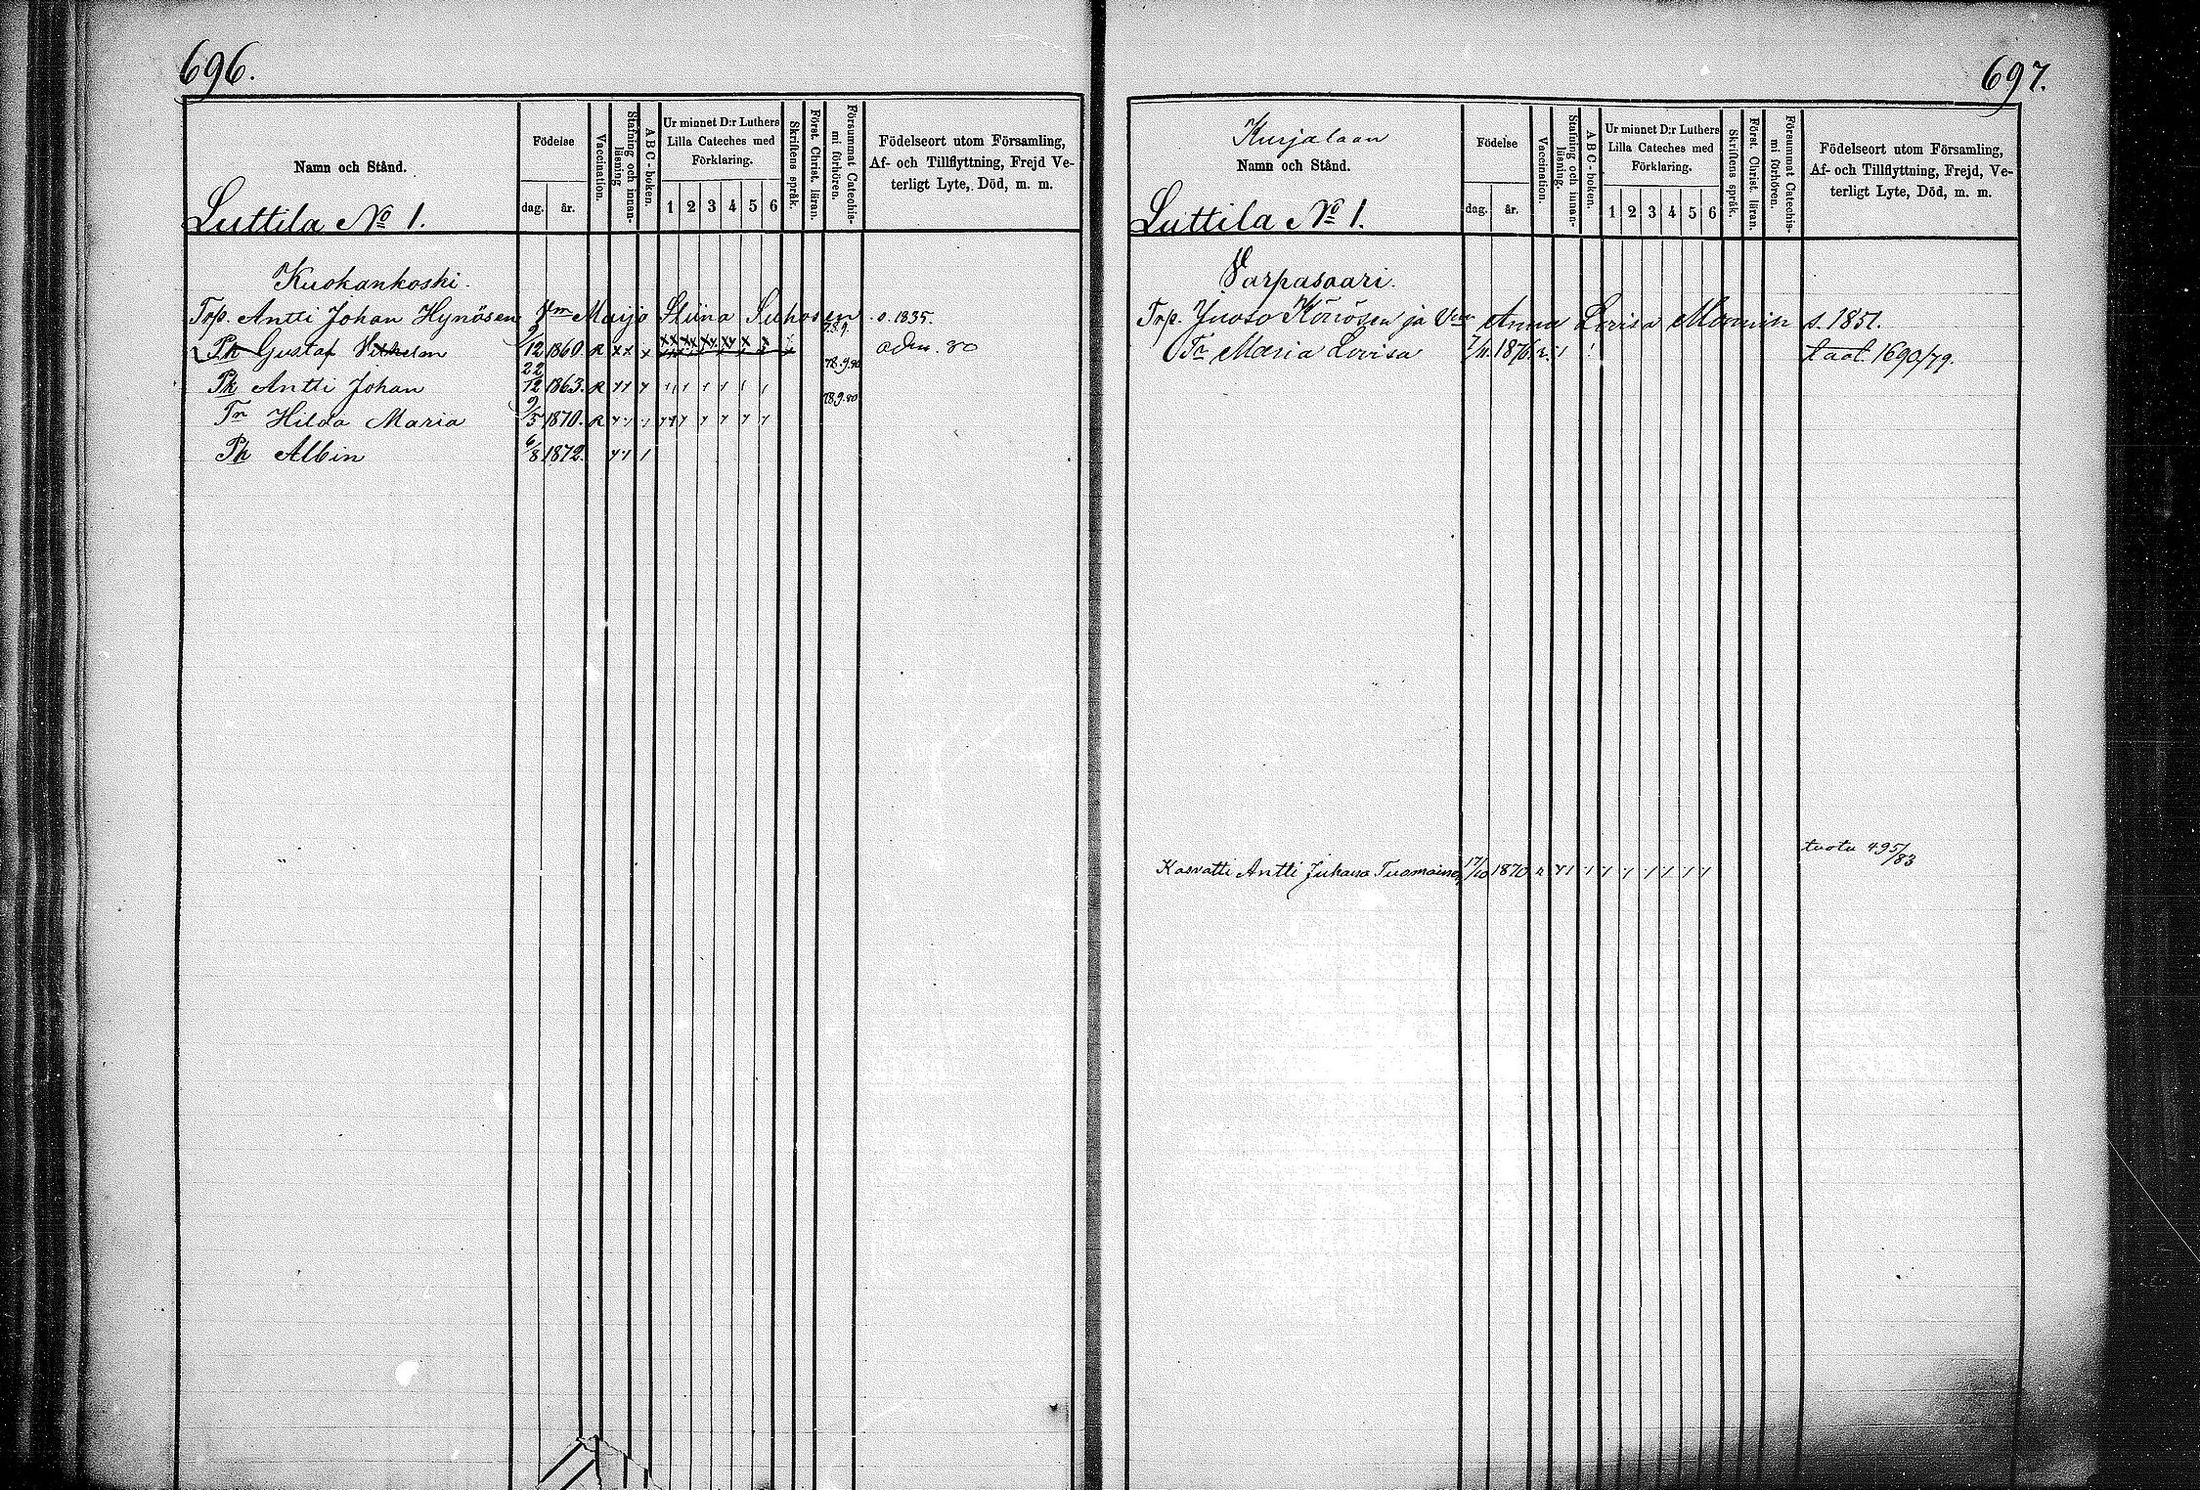 696.
Namn och Stånd.
Födelse
dag. år.
Vaccination.
Stafning och innan-läsning
A B C-boken.
Ur minnet D:r Luthers Lilla Cateches med Förklaring.
1 2 3 4 5 6
Skriftens språk.
Först. Christ. läran.
Försummat Catechis-mi förhören.
Födelseort utom Församling,
Af- och Tillflyttning, Frejd Ve-
terligt Lyte, Död, m. m.
Luttila No 1.
Kuokankoski.
Trp. Antti Johan Hynösen Vm Maija Stiina Suhosen s. 1835.
Pk Gustaf Vilhelm 9/12 1860. R xx x xx xx xx xx x x 78.9. adm. 80
Pk Antti Johan 22/12 1863. R 78.9.80
Tr Hilda Maria 9/5 1870. R 78.9.80
Pk Albin 6/8 1872.
697.
Kurjalaan
Namn och Stånd.
Födelse
dag. år.
Vaccination.
Stafning och innan-läsning.
A B C-boken.
Ur minnet D:r Luthers Lilla Cateches med Förklaring.
1 2 3 4 5 6
Skriftens språk.
Först. Christ. läran.
Försummat Catechis-mi förhören.
Födelseort utom Församling,
Af- och Tillflyttning, Frejd, Ve-
terligt Lyte, Död, m. m.
Luttila No 1.
Varpasaari.
Trp. Juoso Könösen ja Vm Anna Lovisa Moonin s. 1851.
Tr Maria Lovisa 7/11 1876. r. taat. 1690/79.
tuotu 495/83
Kasvatti Antti Juhana Tuomainen 17/10 1870 r